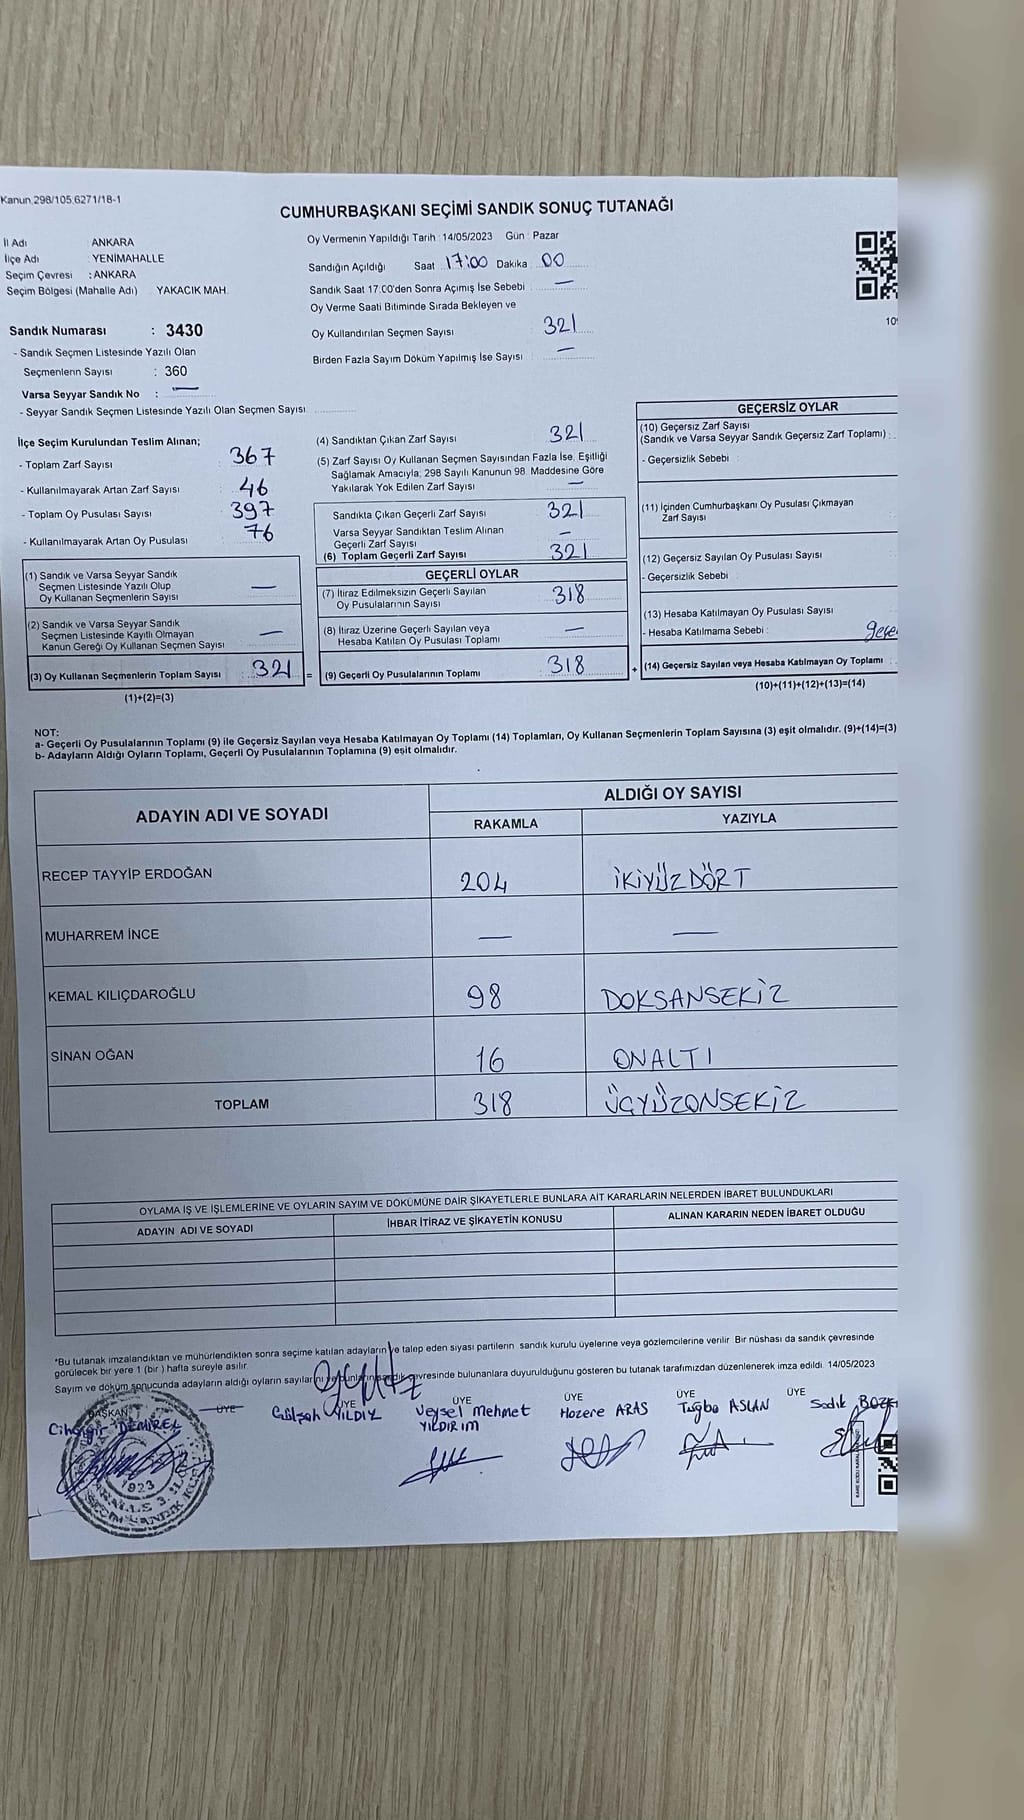 Kanun 298/105,6271/18-1
CUMHURBAŞKANI SEÇİMİ SANDIK SONUÇ TUTANAĞI
İl Adı ANKARA
İlçe Adı : YENİMAHALLE
Seçim Çevresi : ANKARA
Seçim Bölgesi (Mahalle Adı) YAKACIK MAH.
Oy Vermenin Yapıldığı Tarih : 14/05/2023 Gün : Pazar
Sandığın Açıldığı Saat 17:00 Dakika 00
Sandık Saat 17:00'den Sonra Açımış İse Sebebi : —
Oy Verme Saati Bitiminde Sırada Bekleyen ve
Oy Kullandırılan Seçmen Sayısı : 321
Birden Fazla Sayım Döküm Yapılmış İse Sayısı : —
10
Sandık Numarası : 3430
- Sandık Seçmen Listesinde Yazılı Olan
Seçmenlerin Sayısı : 360
Varsa Seyyar Sandık No : —
- Seyyar Sandık Seçmen Listesinde Yazılı Olan Seçmen Sayısı
İlçe Seçim Kurulundan Teslim Alınan;
- Toplam Zarf Sayısı : 367
- Kullanılmayarak Artan Zarf Sayısı : 46
- Toplam Oy Pusulası Sayısı : 397
- Kullanılmayarak Artan Oy Pusulası : 76
(1) Sandık ve Varsa Seyyar Sandık
Seçmen Listesinde Yazılı Olup
Oy Kullanan Seçmenlerin Sayısı —
(2) Sandık ve Varsa Seyyar Sandık
Seçmen Listesinde Kayıtlı Olmayan
Kanun Gereği Oy Kullanan Seçmen Sayısı —
(3) Oy Kullanan Seçmenlerin Toplam Sayısı : 321 =
(1)+(2)=(3)
(4) Sandıktan Çıkan Zarf Sayısı 321
(5) Zarf Sayısı Oy Kullanan Seçmen Sayısından Fazla İse, Eşitliği
Sağlamak Amacıyla; 298 Sayılı Kanunun 98. Maddesine Göre
Yakılarak Yok Edilen Zarf Sayısı —
Sandıkta Çıkan Geçerli Zarf Sayısı 321
Varsa Seyyar Sandıktan Teslim Alınan
Geçerli Zarf Sayısı —
(6) Toplam Geçerli Zarf Sayısı 321
GEÇERLİ OYLAR
(7) İtiraz Edilmeksizin Geçerli Sayılan
Oy Pusulalarının Sayısı 318
(8) İtiraz Üzerine Geçerli Sayılan veya
Hesaba Katılan Oy Pusulası Toplamı —
(9) Geçerli Oy Pusulalarının Toplamı 318 +
GEÇERSİZ OYLAR
(10) Geçersiz Zarf Sayısı
(Sandık ve Varsa Seyyar Sandık Geçersiz Zarf Toplamı) :
- Geçersizlik Sebebi :
(11) İçinden Cumhurbaşkanı Oy Pusulası Çıkmayan
Zarf Sayısı
(12) Geçersiz Sayılan Oy Pusulası Sayısı
- Geçersizlik Sebebi :
(13) Hesaba Katılmayan Oy Pusulası Sayısı
- Hesaba Katılmama Sebebi :
(14) Geçersiz Sayılan veya Hesaba Katılmayan Oy Toplamı :
(10)+(11)+(12)+(13)=(14)
NOT:
a- Geçerli Oy Pusulalarının Toplamı (9) ile Geçersiz Sayılan veya Hesaba Katılmayan Oy Toplamı (14) Toplamları, Oy Kullanan Seçmenlerin Toplam Sayısına (3) eşit olmalıdır. (9)+(14)=(3)
b- Adayların Aldığı Oyların Toplamı, Geçerli Oy Pusulalarının Toplamına (9) eşit olmalıdır.
ADAYIN ADI VE SOYADI ALDIĞI OY SAYISI
RAKAMLA YAZIYLA
RECEP TAYYİP ERDOĞAN 204 İKİYÜZDÖRT
MUHARREM İNCE — —
KEMAL KILIÇDAROĞLU 98 DOKSANSEKİZ
SİNAN OĞAN 16 ONALTI
TOPLAM 318 ÜÇYÜZONSEKİZ
OYLAMA İŞ VE İŞLEMLERİNE VE OYLARIN SAYIM VE DÖKÜMÜNE DAİR ŞİKAYETLERLE BUNLARA AİT KARARLARIN NELERDEN İBARET BULUNDUKLARI
ADAYIN ADI VE SOYADI İHBAR İTİRAZ VE ŞİKAYETİN KONUSU ALINAN KARARIN NEDEN İBARET OLDUĞU
*Bu tutanak imzalandıktan ve mühürlendikten sonra seçime katılan adayların ve talep eden siyasi partilerin sandık kurulu üyelerine veya gözlemcilerine verilir. Bir nüshası da sandık çevresinde
görülecek bir yere 1 (bir) hafta süreyle asılır.
Sayım ve döküm sonucunda adayların aldığı oyların sayılarını ve bunların sandık çevresinde bulunanlara duyurulduğunu gösteren bu tutanak tarafımızdan düzenlenerek imza edildi. 14/05/2023
BAŞKAN ÜYE ÜYE ÜYE ÜYE ÜYE ÜYE
Cihangir DEMİREL Gülşah YILDIZ Veysel Mehmet YILDIRIM Hazere ARAS Tuğba ASLAN Sadık
1923